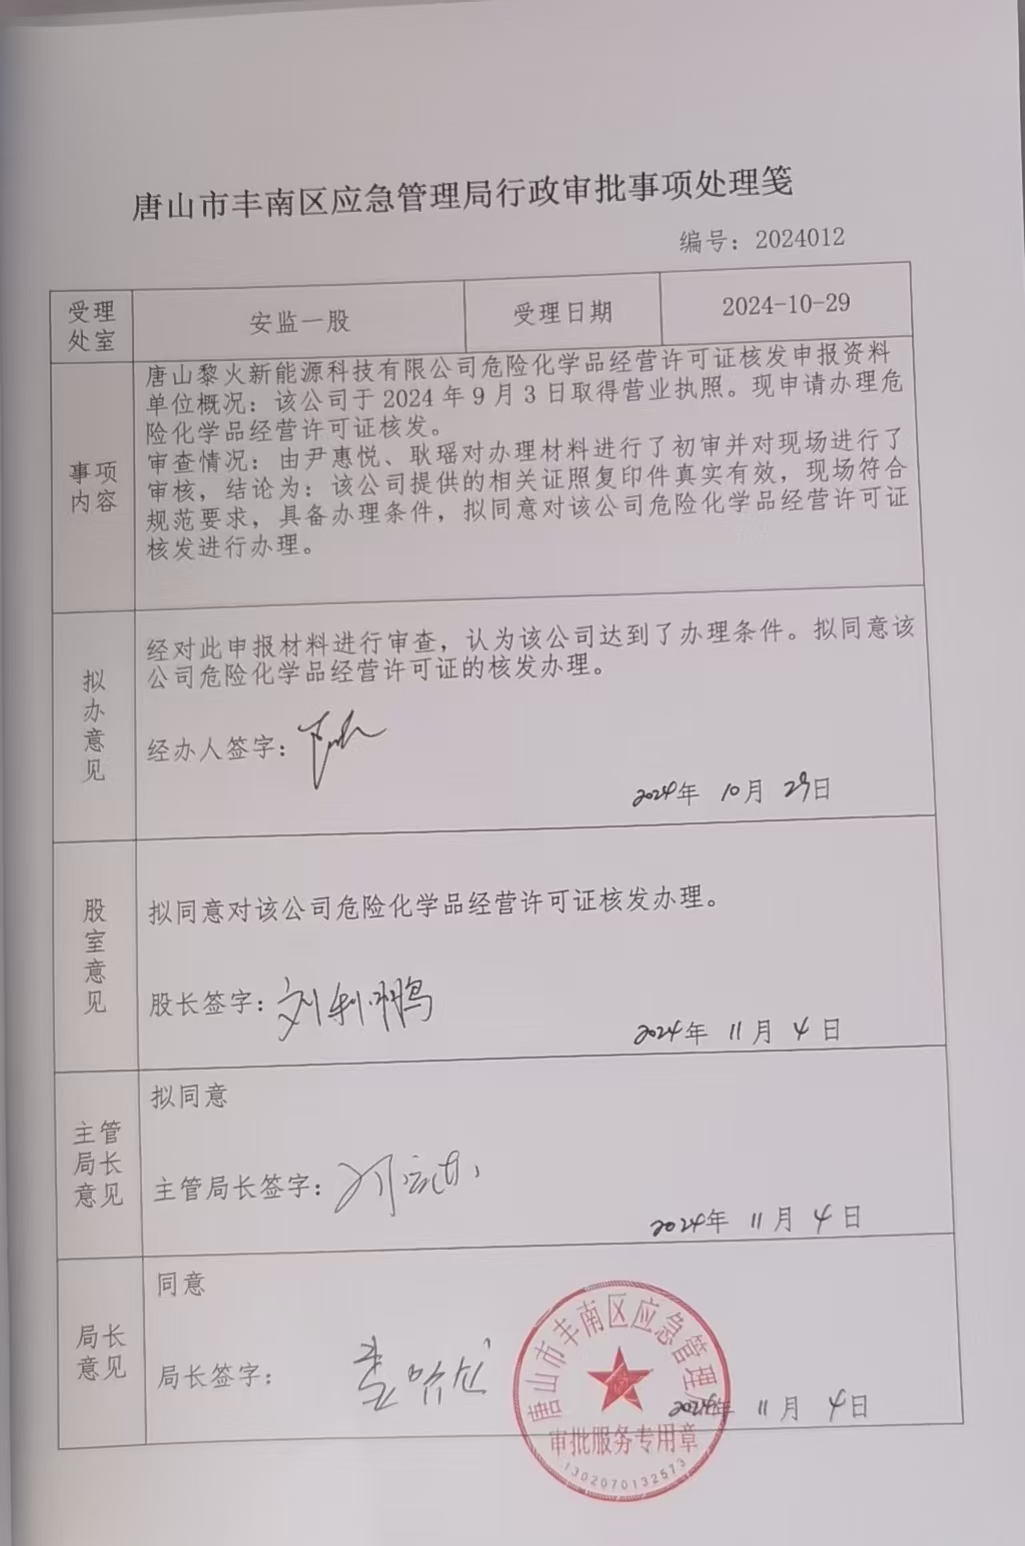 唐山市丰南区应急管理局行政审批事项处理笺
编号：2024012
受理
处室
安监一股
受理日期
2024-10-29
事项
内容
唐山黎火新能源科技有限公司危险化学品经营许可证核发申报资料
单位概况：该公司于 2024 年 9 月 3 日取得营业执照。现申请办理危
险化学品经营许可证核发。
审查情况：由尹惠悦、耿瑶对办理材料进行了初审并对现场进行了
审核，结论为：该公司提供的相关证照复印件真实有效，现场符合
规范要求，具备办理条件，拟同意对该公司危险化学品经营许可证
核发进行办理。
拟
办
意
见
经对此申报材料进行审查，认为该公司达到了办理条件。拟同意该
公司危险化学品经营许可证的核发办理。
经办人签字：
2024年 10月 29日
股
室
意
见
拟同意对该公司危险化学品经营许可证核发办理。
股长签字：刘利鹏
2024年 11月 4日
主管
局长
意见
拟同意
主管局长签字：
2024年 11月 4日
局长
意见
同意
局长签字：
2024年 11月 4日
唐山市丰南区应急管理局
审批服务专用章
1302070132573